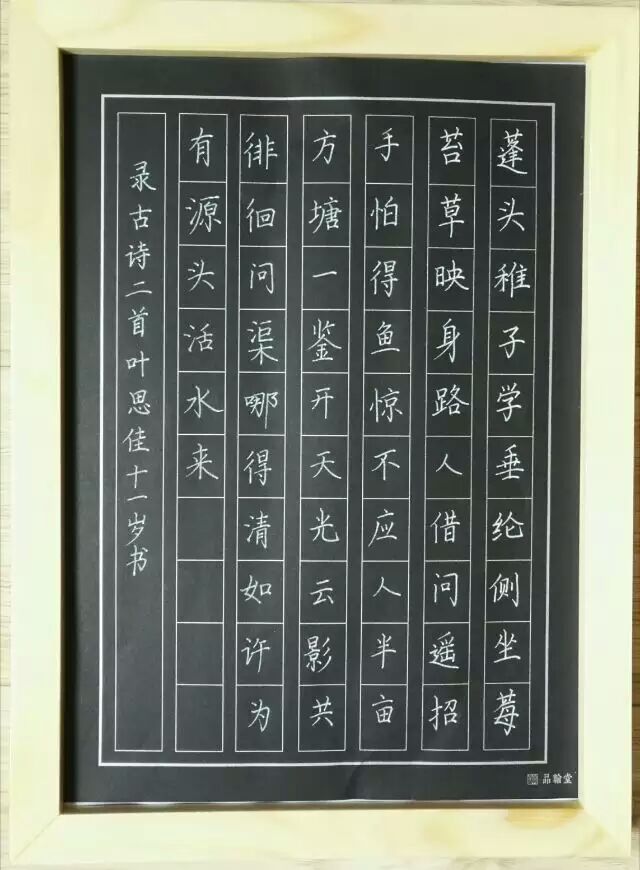 蓬头稚子学垂纶侧坐莓
苔草映身路人借问遥招
手怕得鱼惊不应人半亩
方塘一鉴开天光云影共
徘徊问渠哪得清如许为
有源头活水来
录古诗二首叶思佳十一岁书
品翰堂